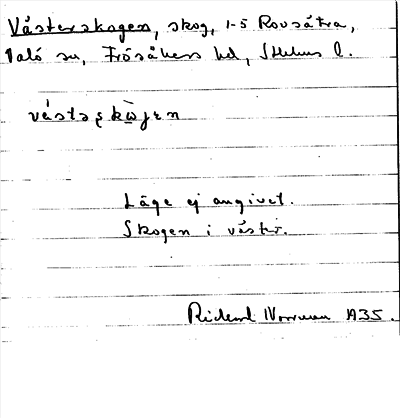 Västerskogen, skog, 1-5 Rovsätra,
Valö sn, Frösåkers hd, Sthlms l.
västəskωgen
Läge ej angivet.
Skogen i väster.
Rickard Norrman 1935.